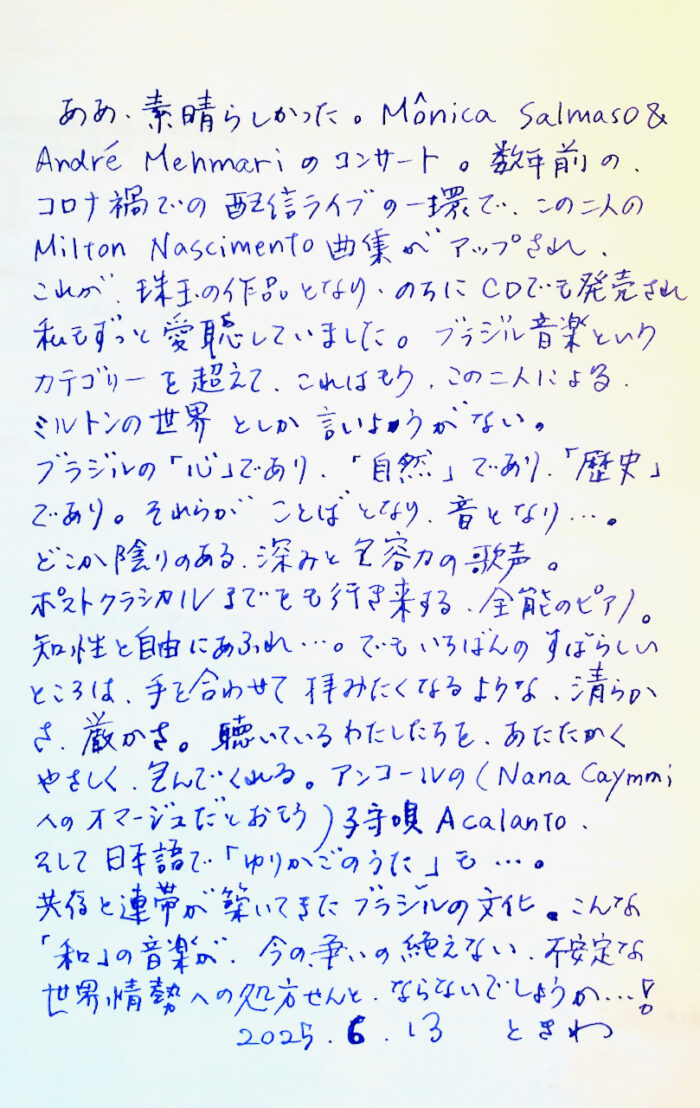 ああ、素晴らしかった。Mônica Salmaso &
André Mehmari のコンサート。数年前の、
コロナ禍での配信ライブの一環で、この二人の
Milton Nascimento 曲集がアップされ、
これが、珠玉の作品となり、のちにCDでも発売され
私もずっと愛聴していました。ブラジル音楽という
カテゴリーを超えて、これはもう、この二人による、
ミルトンの世界としか言いようがない。
ブラジルの「心」であり、「自然」であり、「歴史」
であり。それらがことばとなり、音となり…。
どこか陰りのある、深みと包容力の歌声。
ポストクラシカルまでをも行き来する、全能のピアノ。
知性と自由にあふれ…。でもいちばんのすばらしい
ところは、手を合わせて拝みたくなるような、清らか
さ、厳かさ。聴いているわたしたちを、あたたかく
やさしく、包んでくれる。アンコールの(Nana Caymmi
へのオマージュだとおもう)子守唄 Acalanto、
そして日本語で「ゆりかごのうた」も…。
共存と連帯が築いてきたブラジルの文化。こんな
「和」の音楽が、今の、争いの絶えない、不安定な
世界情勢への処方せんと、ならないでしょうか…!
2025.6.13 ときわ